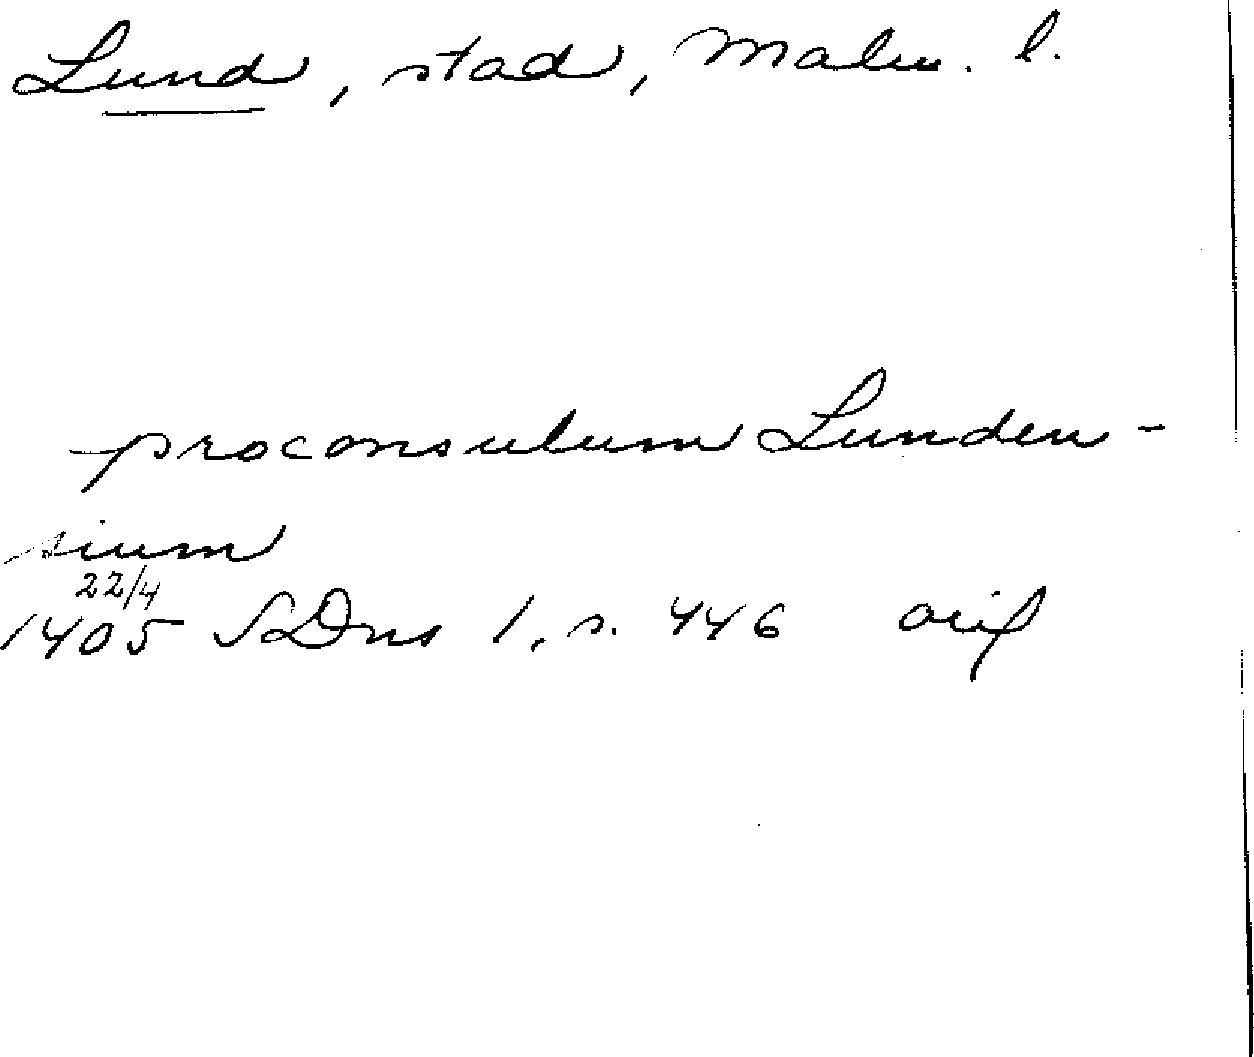 Lund, stad, Malm. l.
proconsulum Lunden-
sium
22/4
1405 SDns 1, s. 446 orig